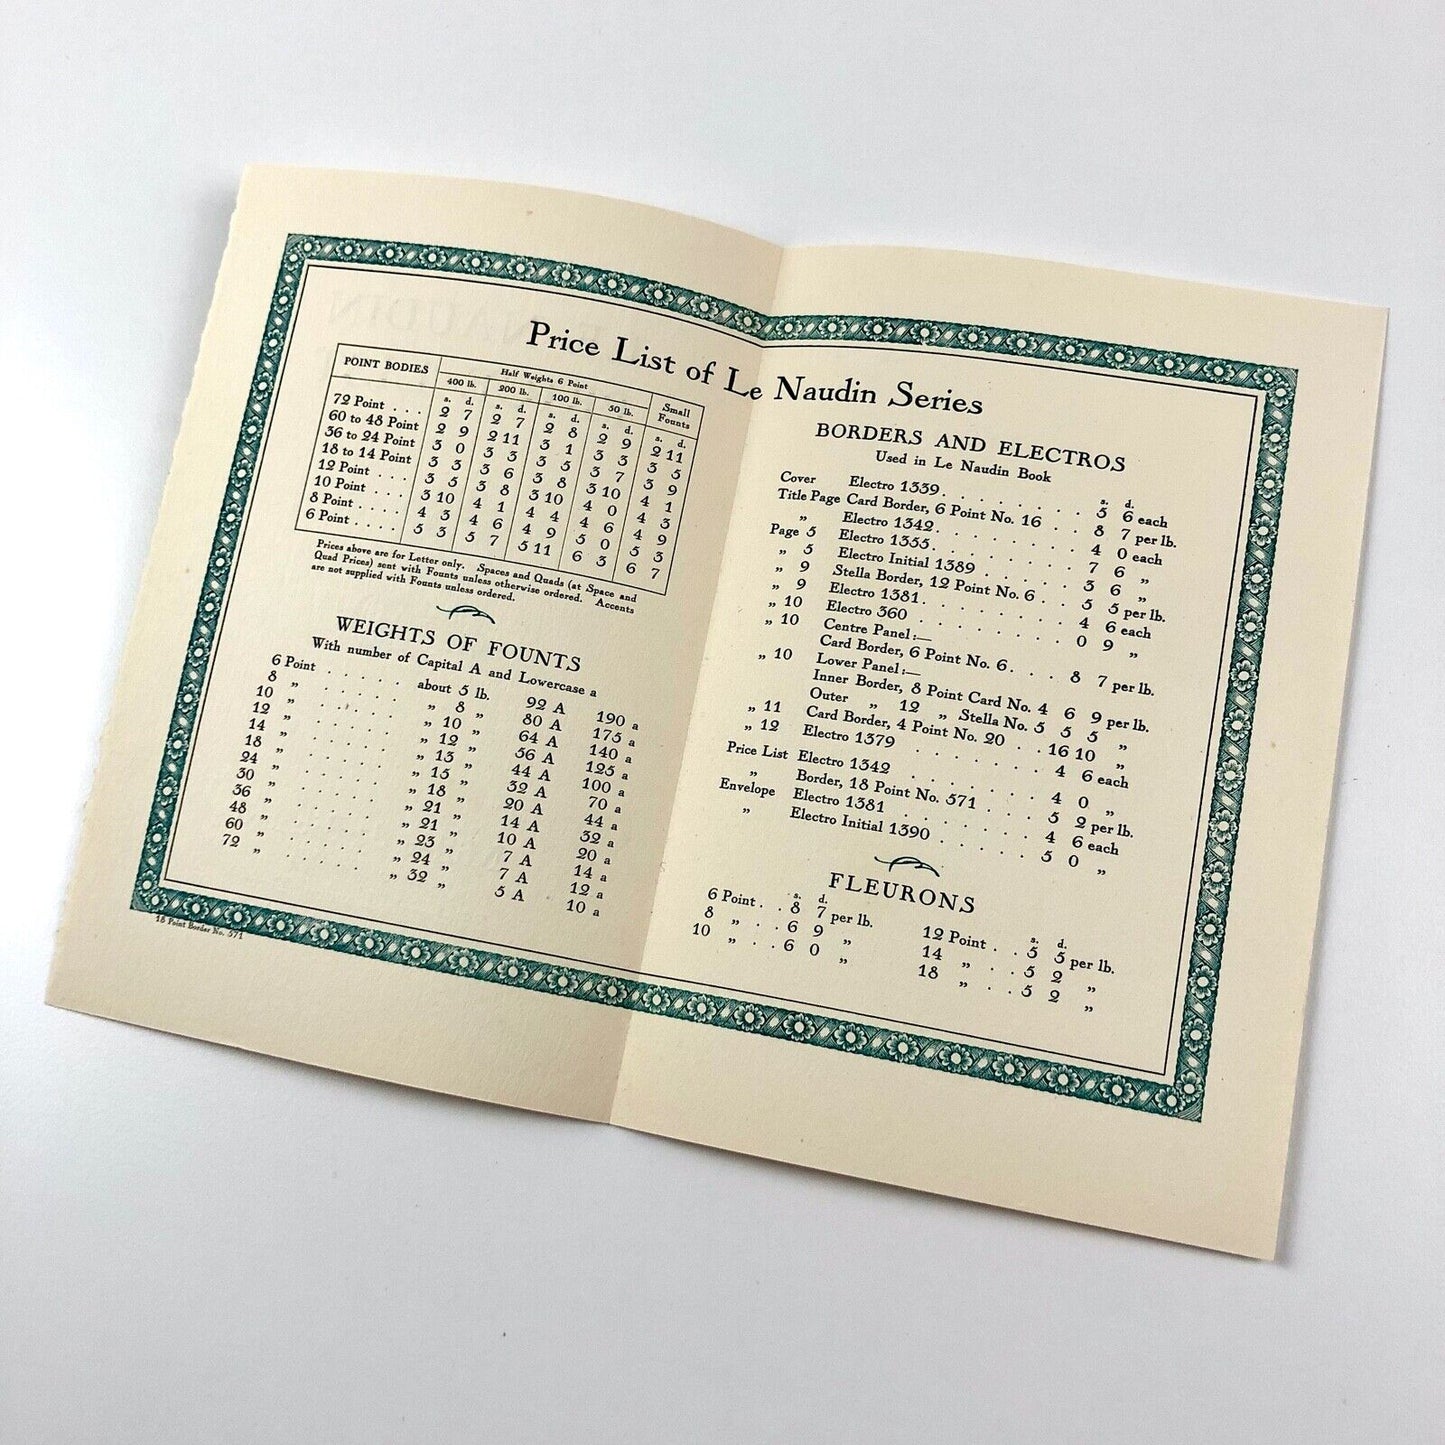 Price List of Le Naudin Series
POINT BODIES Half Weights 6 Point Small Founts
400 lb. 200 lb. 100 lb. 50 lb.
s. d. s. d. s. d. s. d. s. d.
72 Point . . . 2 7 2 7 2 8 2 9 2 11
60 to 48 Point 2 9 2 11 3 1 3 3 3 5
36 to 24 Point 3 0 3 3 3 5 3 7 3 9
18 to 14 Point 3 3 3 6 3 8 3 10 4 1
12 Point . . . . 3 5 3 8 3 10 4 0 4 3
10 Point . . . 3 10 4 1 4 4 4 6 4 9
8 Point . . . . 4 3 4 6 4 9 5 0 5 3
6 Point . . . . 5 3 5 7 5 11 6 3 6 7
Prices above are for Letter only. Spaces and Quads (at Space and
Quad Prices) sent with Founts unless otherwise ordered. Accents
are not supplied with Founts unless ordered.
WEIGHTS OF FOUNTS
With number of Capital A and Lowercase a
6 Point . . . . . about 5 lb. 92 A 190 a
8 „ . . . . . „ 8 „ 80 A 175 a
10 „ . . . . . „ 10 „ 64 A 140 a
12 „ . . . . . „ 12 „ 56 A 125 a
14 „ . . . . . „ 13 „ 44 A 100 a
18 „ . . . . . „ 15 „ 32 A 70 a
24 „ . . . . . „ 18 „ 20 A 44 a
30 „ . . . . . „ 21 „ 14 A 32 a
36 „ . . . . . „ 21 „ 10 A 20 a
48 „ . . . . . „ 23 „ 7 A 14 a
60 „ . . . . . „ 24 „ 7 A 12 a
72 „ . . . . . „ 32 „ 5 A 10 a
18 Point Border No. 571
BORDERS AND ELECTROS
Used in Le Naudin Book
s. d.
Cover Electro 1339 . . . . . . . . 5 6 each
Title Page Card Border, 6 Point No. 16 . . 8 7 per lb.
„ Electro 1342 . . . . . . . . 4 0 each
Page 5 Electro 1355 . . . . . . . . 7 6 „
„ 5 Electro Initial 1389 . . . . . 3 6 „
„ 9 Stella Border, 12 Point No. 6 . . 5 5 per lb.
„ 9 Electro 1381 . . . . . . . . 4 6 each
„ 10 Electro 360 . . . . . . . . 0 9 „
„ 10 Centre Panel:—
Card Border, 6 Point No. 6 . . . 8 7 per lb.
„ 10 Lower Panel:—
Inner Border, 8 Point Card No. 4 6 9 per lb.
Outer „ 12 „ Stella No. 5 5 5 „
„ 11 Card Border, 4 Point No. 20 . . 16 10 „
„ 12 Electro 1379 . . . . . . . 4 6 each
Price List Electro 1342 . . . . . . . 4 0 „
„ Border, 18 Point No. 571 . . . 5 2 per lb.
Envelope Electro 1381 . . . . . . . 4 6 each
„ Electro Initial 1390 . . . . . 5 0 „
FLEURONS
s. d. s. d.
6 Point . . 8 7 per lb. 12 Point . . 5 5 per lb.
8 „ . . 6 9 „ 14 „ . . 5 2 „
10 „ . . 6 0 „ 18 „ . . 5 2 „